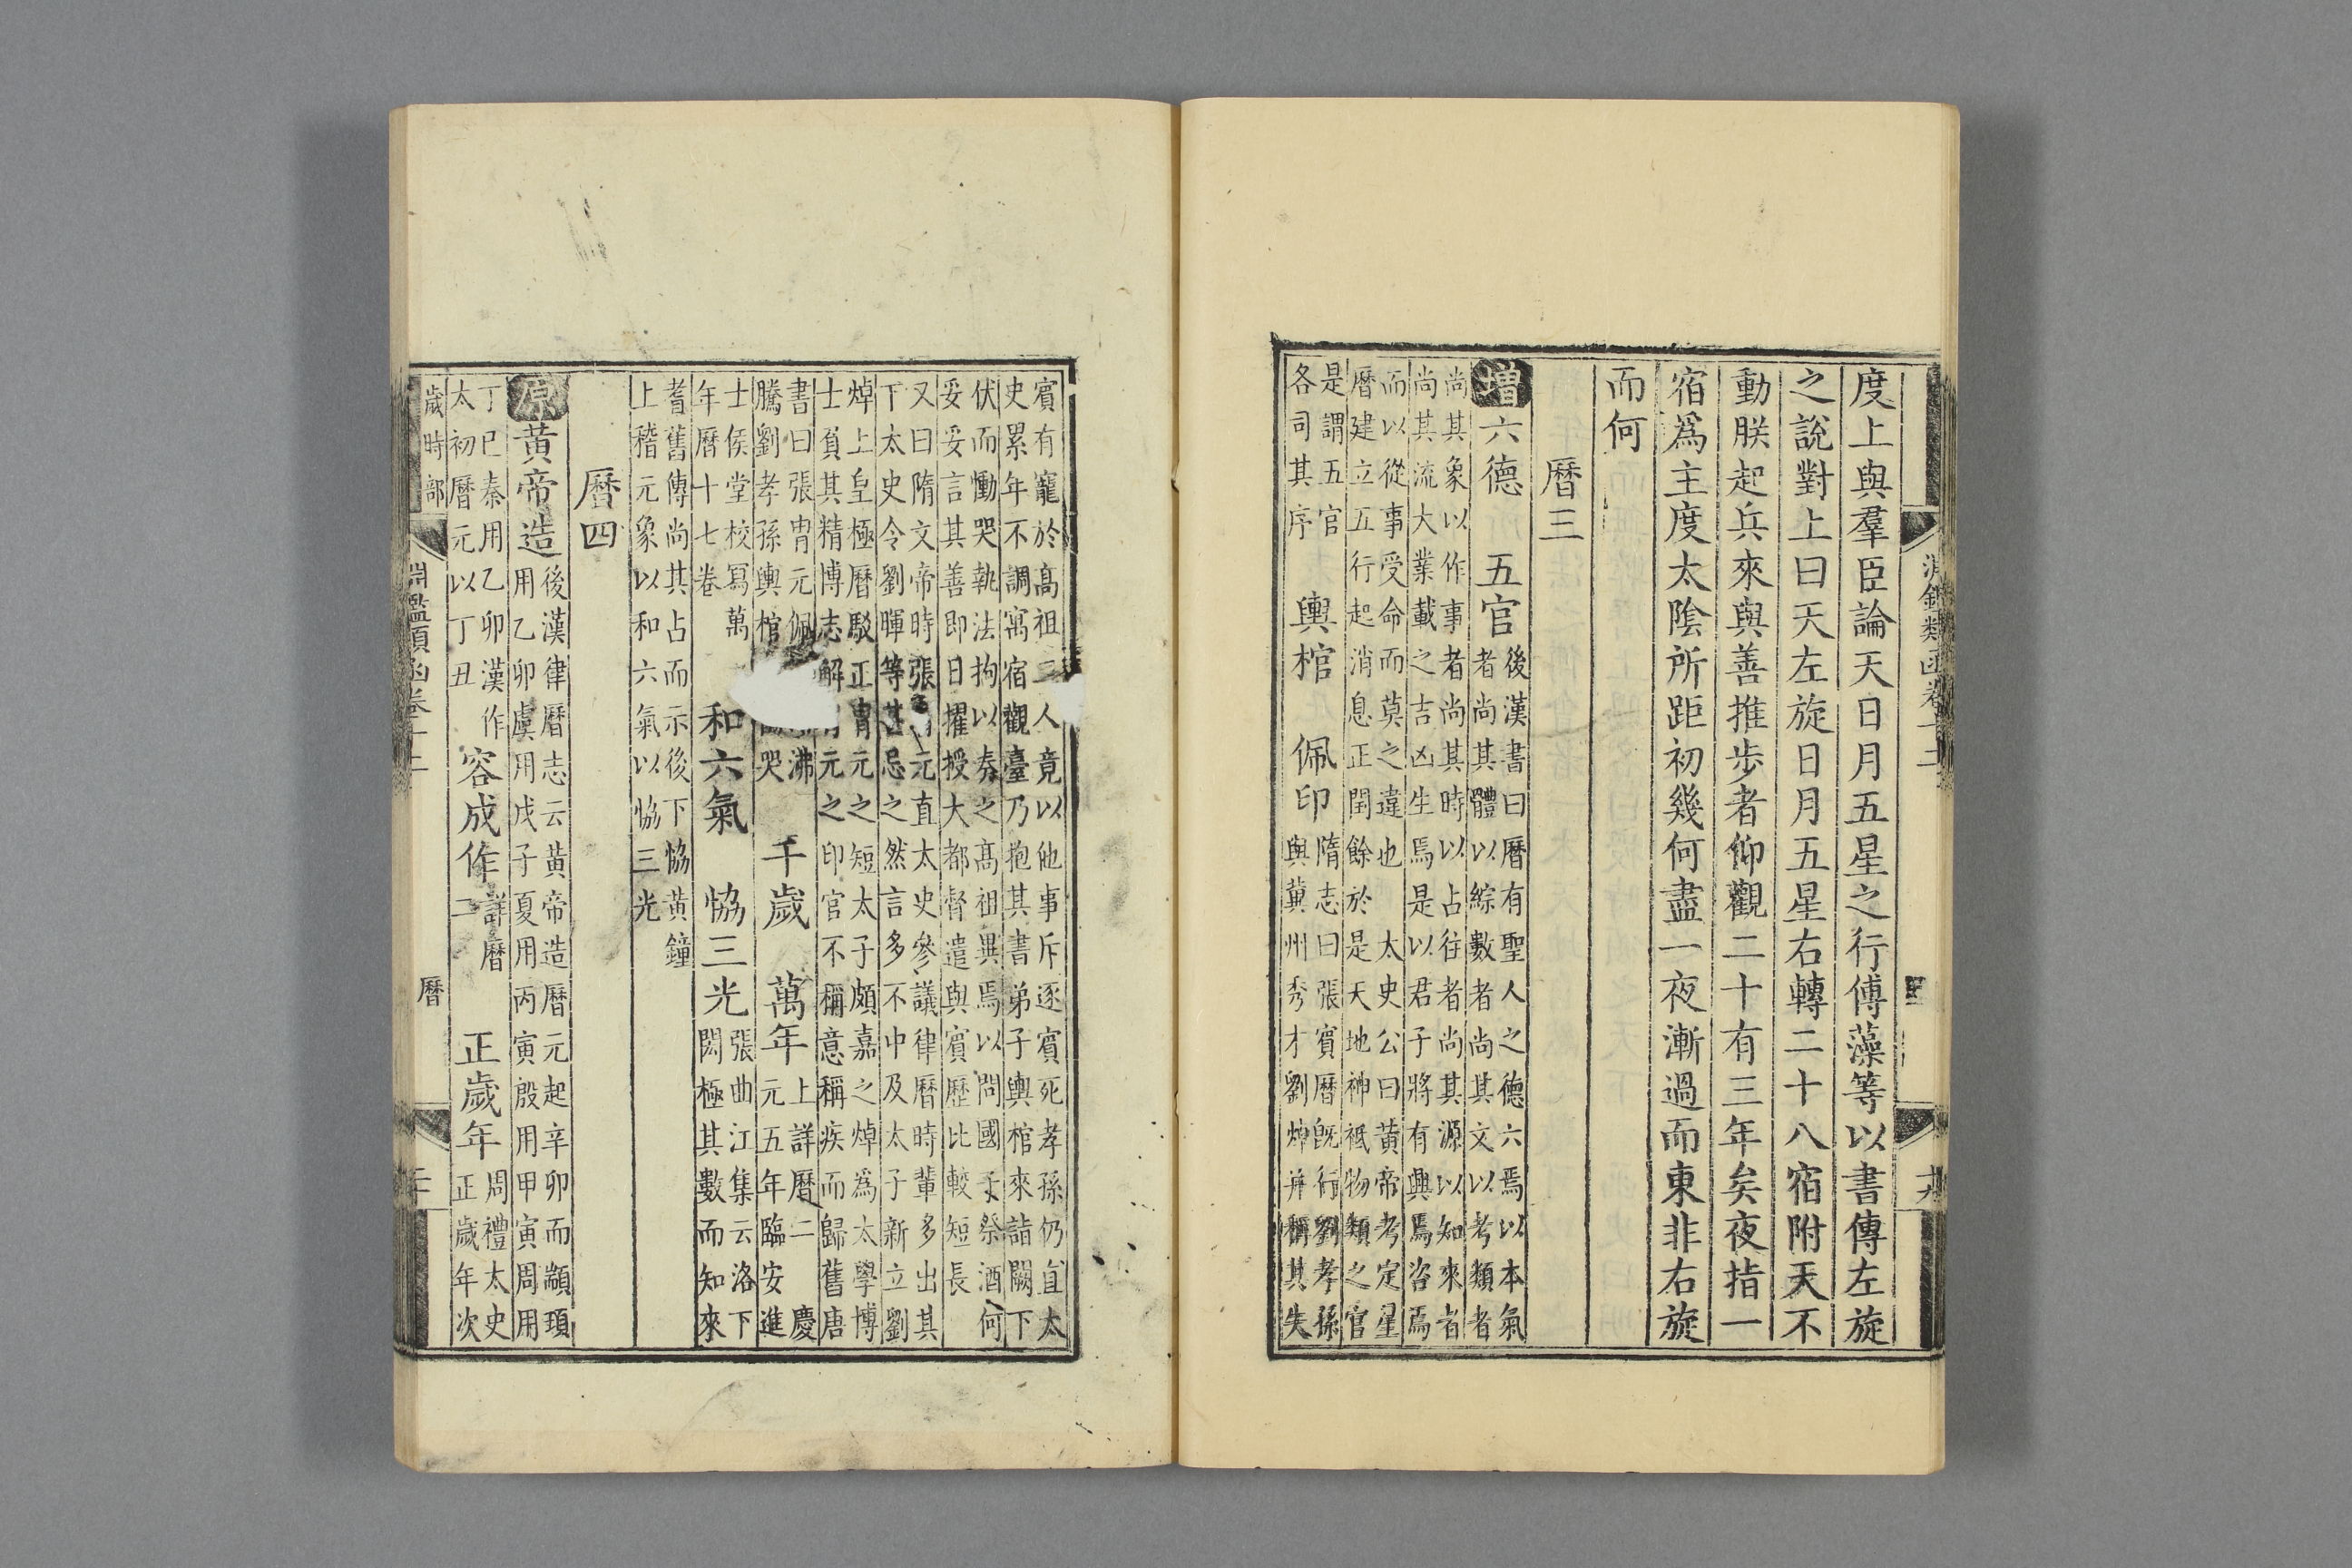 度上與羣臣論天日月五星之行傅藻等以書傳左旋
之說對上曰天左旋日月五星右轉二十八宿附天不
動朕起兵來與善推步者仰觀二十有三年矣夜指一
宿爲主度太陰所距初幾何盡一夜漸過而東非右旋
而何
曆三
增六德 五官
後漢書曰曆有聖人之德六焉以本氣
者尚其體以綜數者尚其文以考類者
尚其象以作事者尚其時以占往者尚其源以知來者
尚其流大業載之吉凶生焉是以君子將有興焉咨焉
而以從事受命而莫之違也 太史公曰黃帝考定星
曆建立五行起消息正閏餘於是天地神祇物類之官
是謂五官
各司其序
輿棺 佩印
隋志曰張賓曆旣行劉孝孫
與冀州秀才劉焯并稱其失
賓有寵於髙祖二人竟以他事斥逐賓死孝孫仍直太
史累年不調寓宿觀臺乃抱其書弟子輿棺來詣闕下
伏而慟哭執法拘以奏之髙祖異焉以問國子祭酒何
妥妥言其善即日擢授大都督遣與賓歷比較短長
又曰隋文帝時張元直太史參議律曆時輩多出其
下太史令劉暉等甚忌之然言多不中及太子新立劉
焯上皇極曆駁正胄元之短太子頗嘉之焯爲太學博
士負其精博志解元之印官不稱意稱疾而歸舊唐
書曰張胄元佩沸
騰劉孝孫輿棺哭
千歲 萬年
上詳曆二 慶
元五年臨安進
士侯堂校冩萬
年曆十七卷
和六氣 恊三光
張曲江集云洛下
閎極其數而知來
耆舊傳尚其占而示後下恊黃鐘
上稽元象以和六氣以恊三光
曆四
原黃帝造
後漢律曆志云黃帝造曆元起辛卯而顓頊
用乙卯虞用戊子夏用丙寅殷用甲寅周用
丁巳秦用乙卯漢作
太初曆元以丁丑
容成作
詳曆
二
正歲年
周禮太史
正歲年次
歲時部
淵鑑類函卷十二
曆